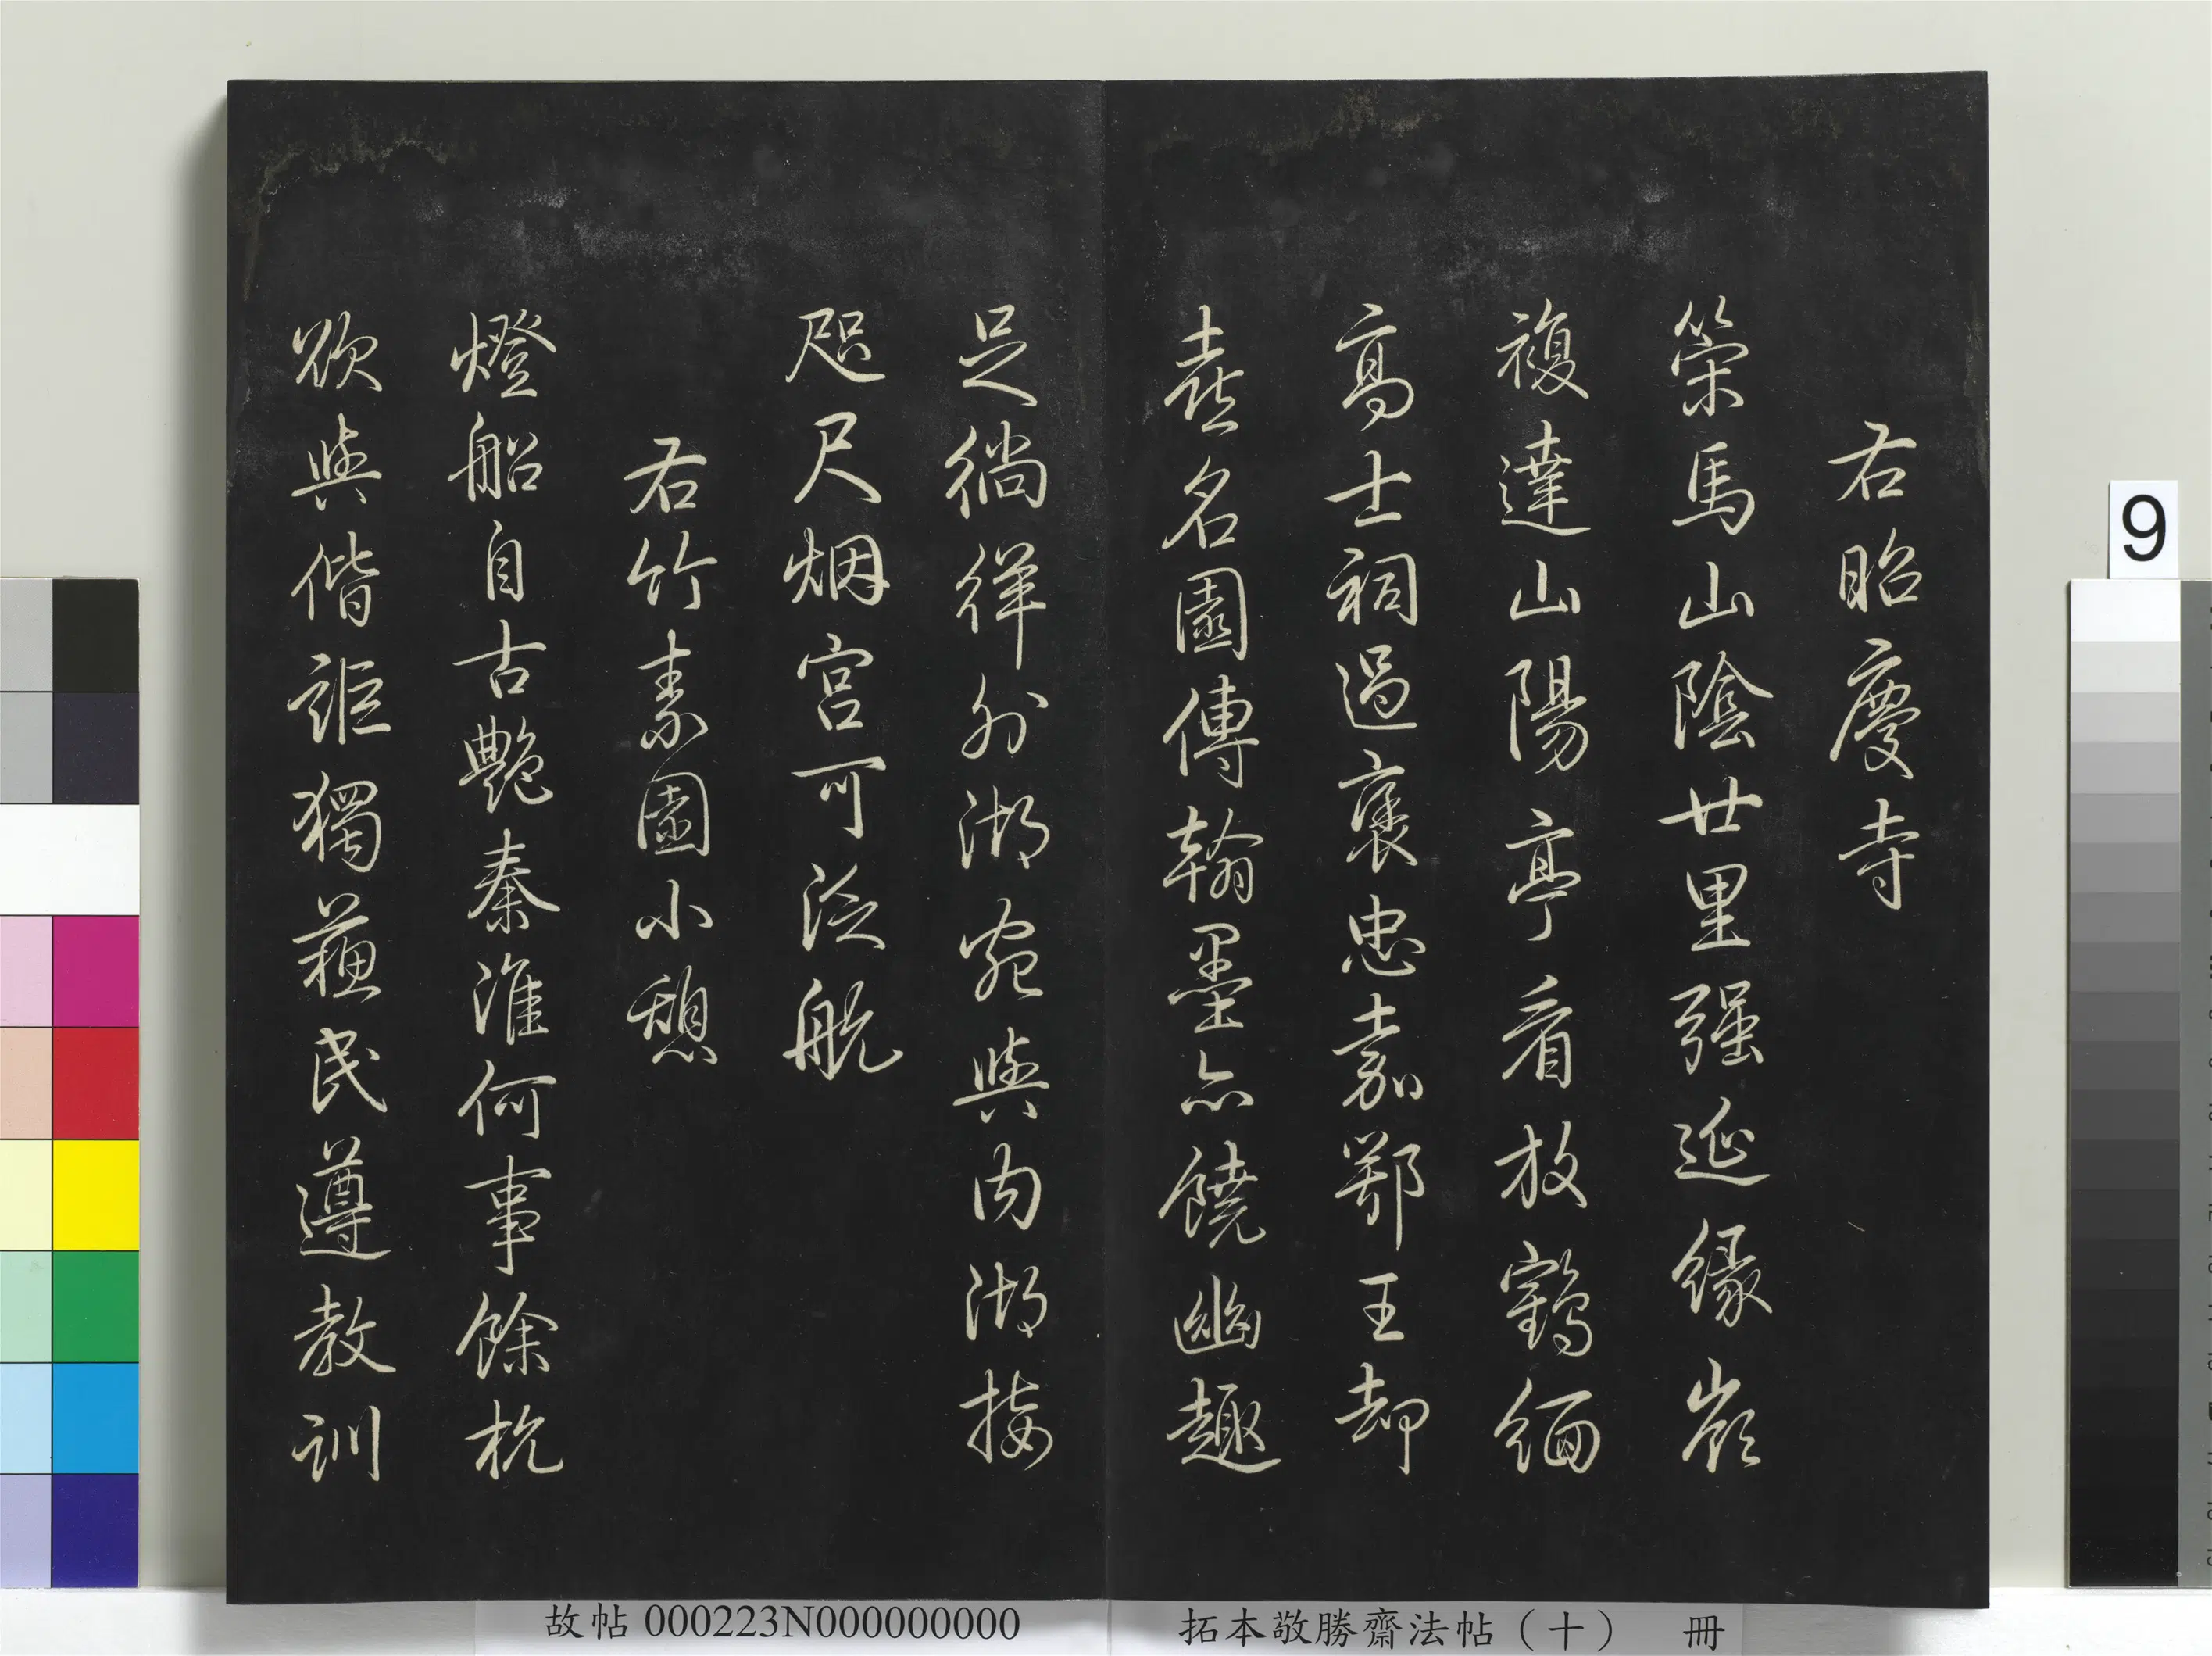 右昭慶寺
策馬山陰廿里强延緣嶺
複達山陽亭看放鶴緬
高士祠過褒忠嘉鄂王却
喜名園傳翰墨亦饒幽趣
足徜徉外湖宛與内湖接
咫尺烟宫可泛航
右竹素園小憩
燈船自古艷秦淮何事餘杭
欲與偕詎獨蘓民遵教訓
9
故帖 000223N000000000
拓本敬勝齋法帖（十） 冊